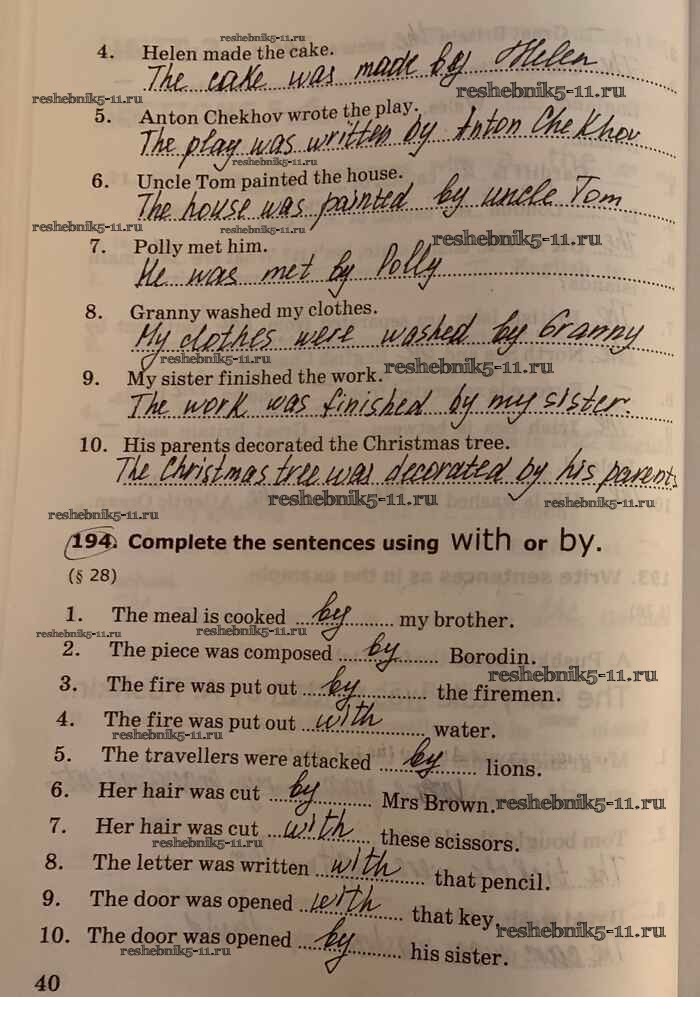 reshebnik5-11.ru
4. Helen made the cake.
The cake was made by Helen
reshebnik5-11.ru reshebnik5-11.ru
5. Anton Chekhov wrote the play.
The play was written by Anton CheKhov
reshebnik5-11.ru
6. Uncle Tom painted the house.
The house was painted by uncle Tom
reshebnik5-11.ru reshebnik5-11.ru
7. Polly met him.
He was met by Polly
reshebnik5-11.ru
8. Granny washed my clothes.
My clothes were washed by Granny
reshebnik5-11.ru reshebnik5-11.ru
9. My sister finished the work.
The work was finished by my sister.
reshebnik5-11.ru
10. His parents decorated the Christmas tree.
The Christmas tree was decorated by his parents
reshebnik5-11.ru reshebnik5-11.ru
reshebnik5-11.ru
194. Complete the sentences using with or by.
(§ 28)
1. The meal is cooked by my brother.
reshebnik5-11.ru reshebnik5-11.ru
2. The piece was composed by Borodin.
reshebnik5-11.ru
3. The fire was put out by the firemen.
4. The fire was put out with water.
reshebnik5-11.ru
5. The travellers were attacked by lions.
6. Her hair was cut by Mrs Brown. reshebnik5-11.ru
7. Her hair was cut with these scissors.
reshebnik5-11.ru
8. The letter was written with that pencil.
9. The door was opened with that key.
reshebnik5-11.ru
10. The door was opened by his sister.
reshebnik5-11.ru
40